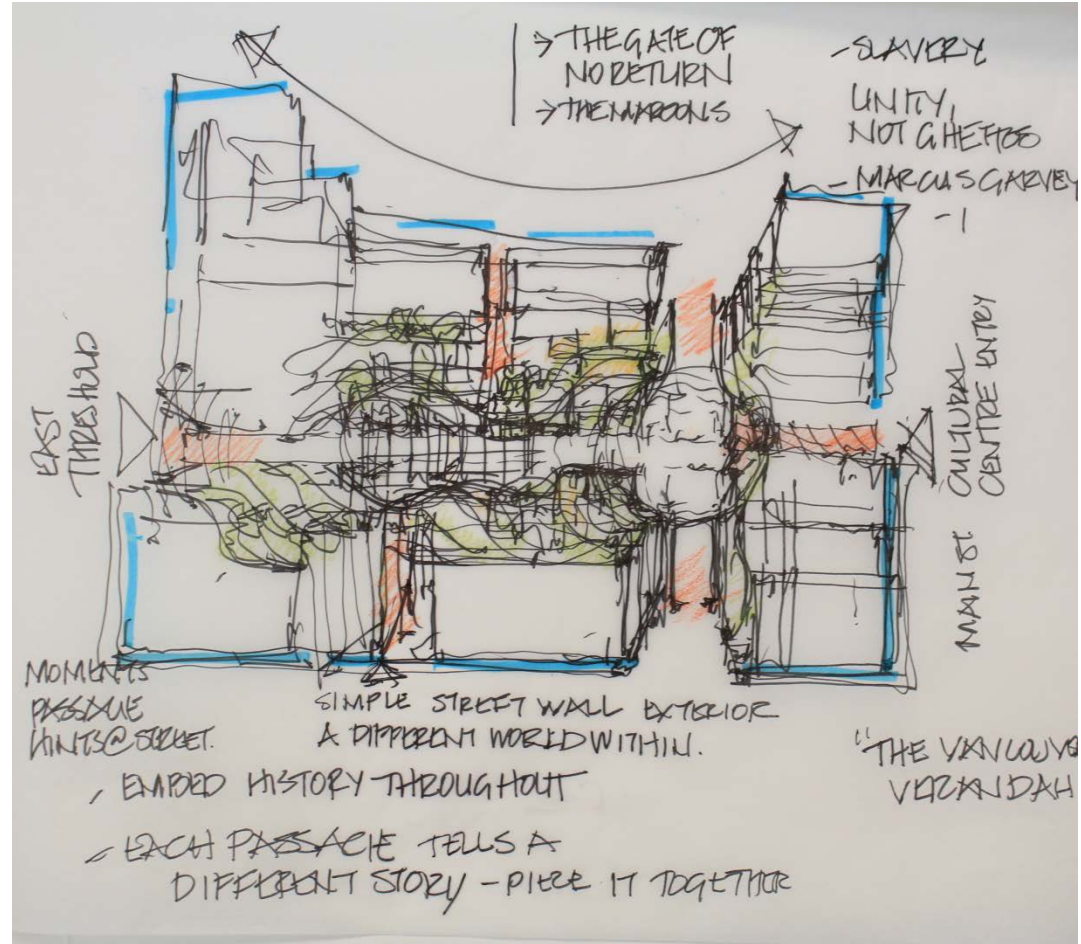 → THE GATE OF
NO RETURN
→ THE MAROONS
- SLAVERY
UNITY,
NOT GHETTOS
- MARCUS GARVEY
- 1
EAST
THRESHOLD
CULTURAL
CENTRE ENTRY
MAIN ST
MOMENTS
PASSAGE
HINTS@STREET.
SIMPLE STREET WALL EXTERIOR
A DIFFERENT WORLD WITHIN.
"THE VANCOUVE
VERANDAH
- EMBED HISTORY THROUGHOUT
- EACH PASSAGE TELLS A
DIFFERENT STORY - PIECE IT TOGETHER